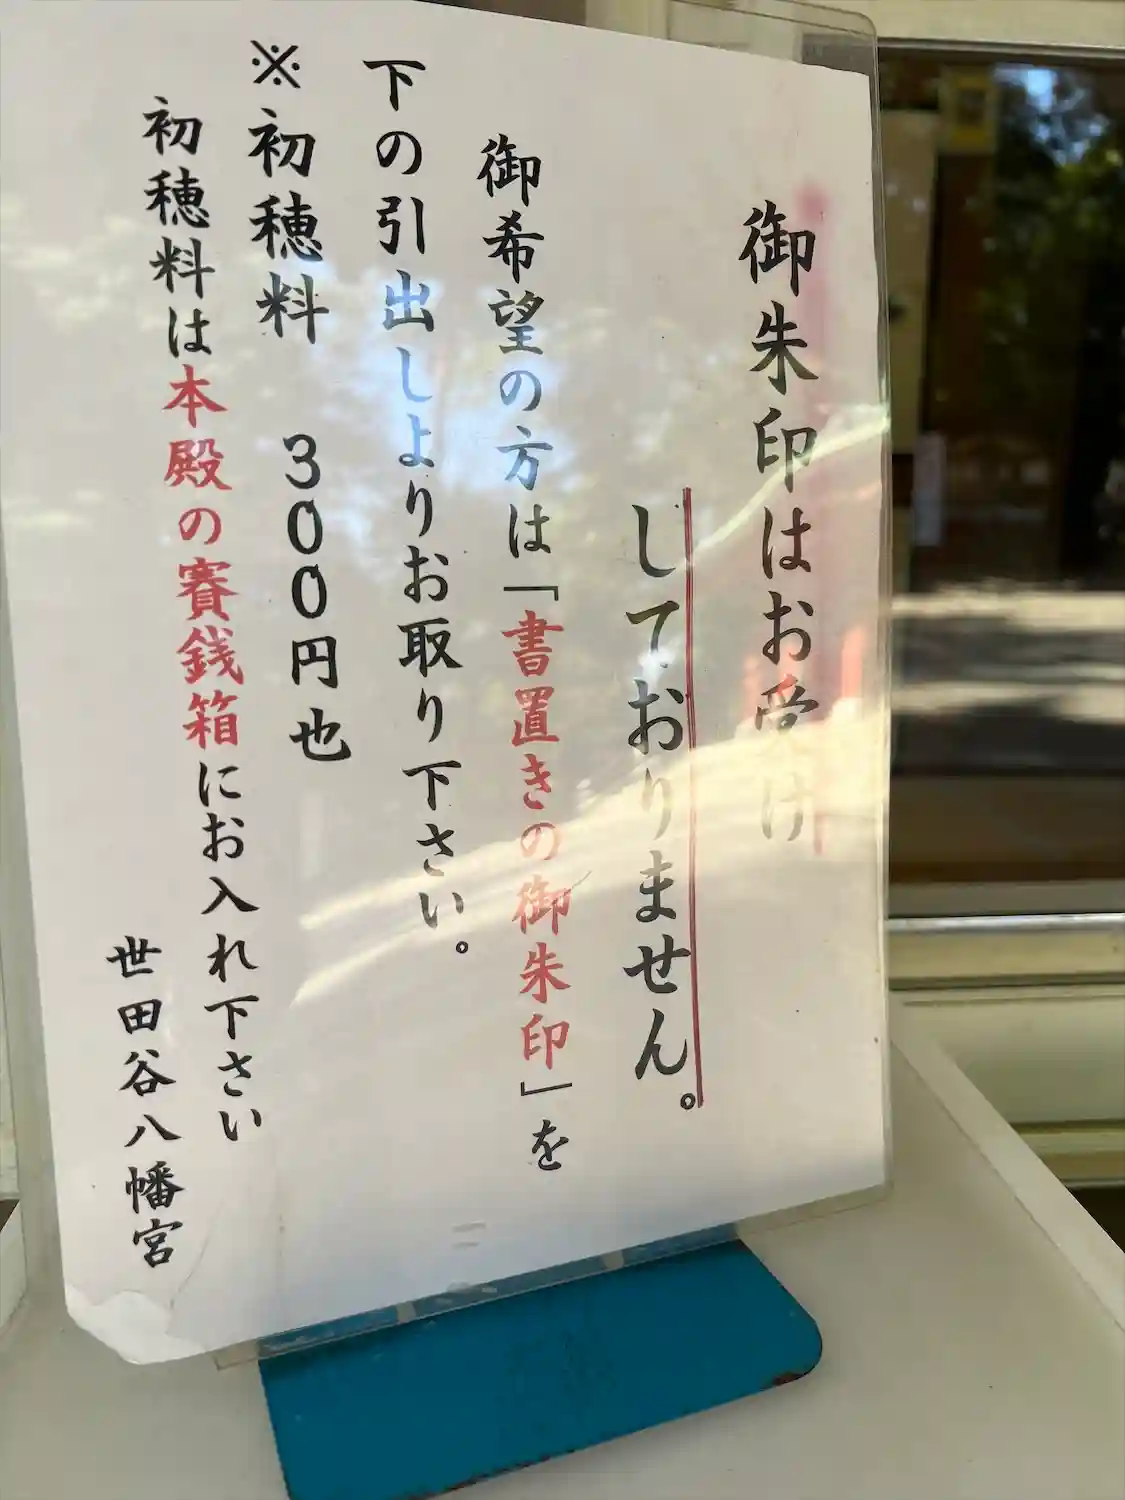 御朱印はお受け
しておりません。
御希望の方は「書置きの御朱印」を
下の引出しよりお取り下さい。
※初穂料 300円也
初穂料は本殿の賽銭箱にお入れ下さい
世田谷八幡宮